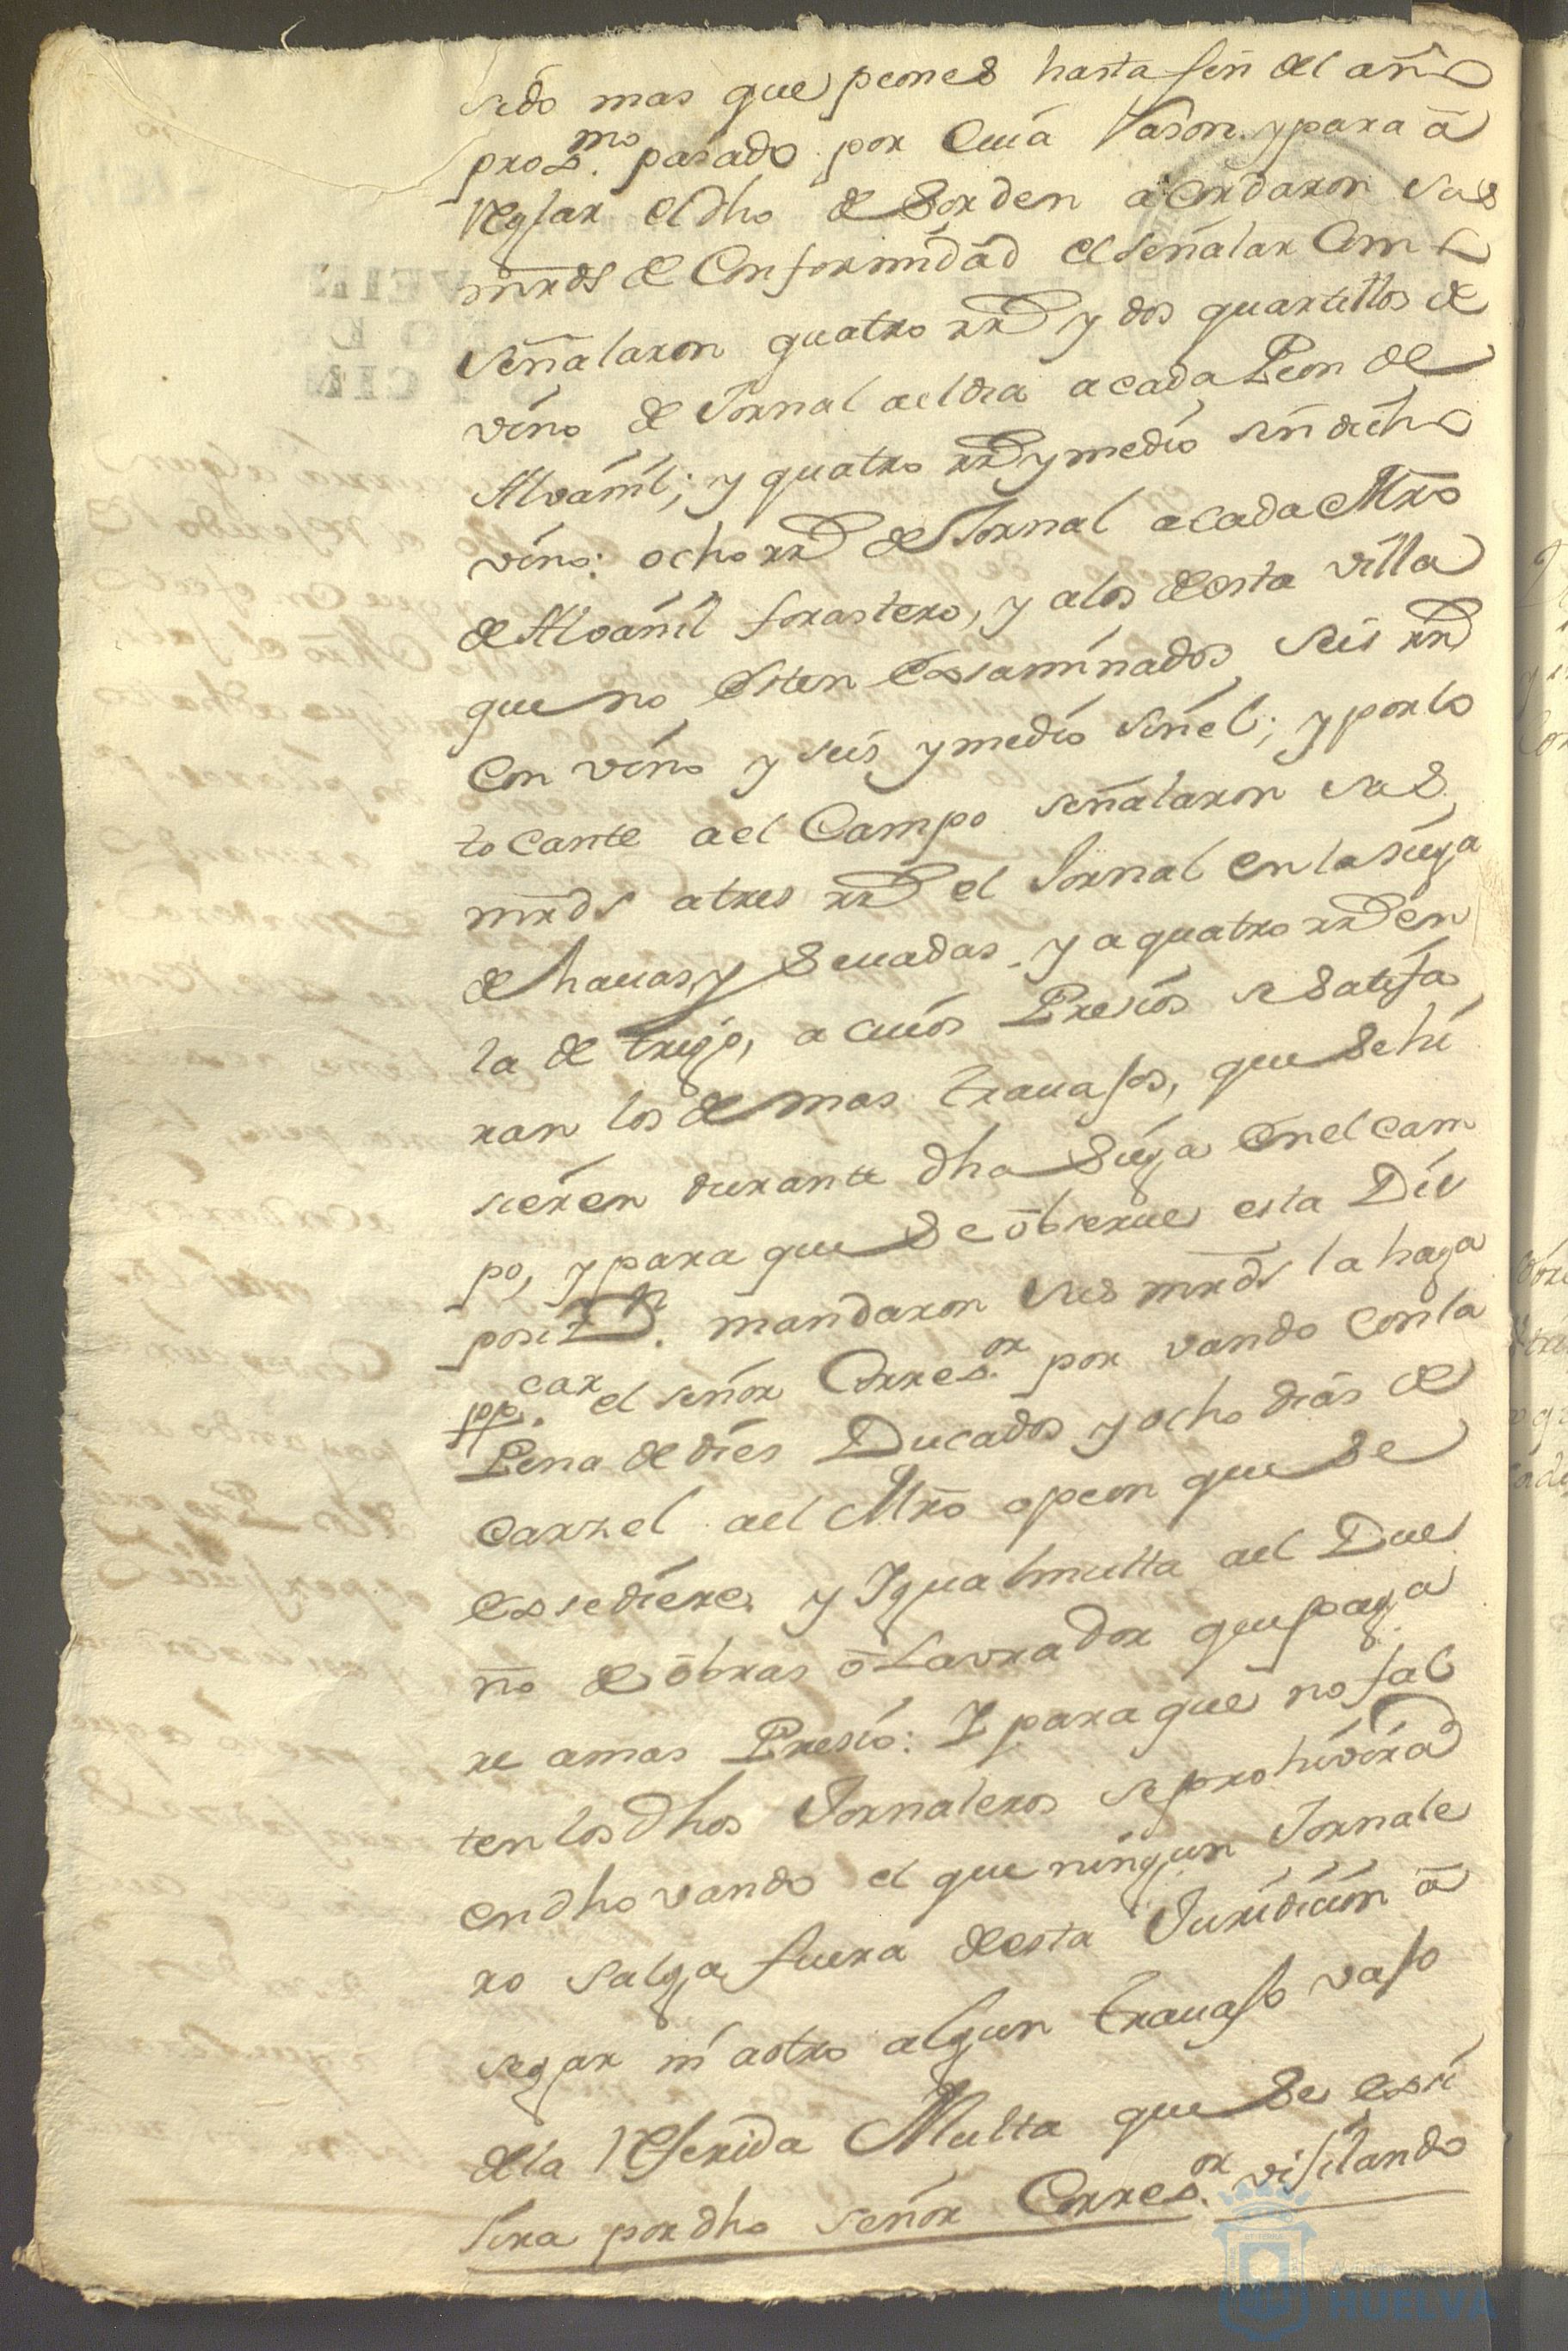 sido mas que peones hasta fin del año
prox.mo pasado por cuia rason y para a
reglar el dho desorden acordaron sus
mrds de conformidad el señalar como
señalaron quatro rrs y dos quartillos de
vino de Jornal ael dia a cada Peon de
Alvañil; y quatro rrs y medio sin dicho
vino: ocho rrs de Jornal a cada Mro
de Alvañil forastero, y a los desta villa
que no esten exsaminados seis rrs
con vino y seis y medio sin el; y por lo
tocante ael Campo señalaron sus
mrds a tres rrs el Jornal en la siega
de havas, y Sevadas, y a quatro rrs en
la de trigo, a cuios Presios se satisfa
ran los demas travajos, que se hi
sieren durante dha Siega en el cam
po, y para que se observe esta Dis
posiz.n mandaron sus mrds la haga
pp.car el señor Correx.or por vando con la
Pena de dies Ducados y ocho dias de
Carzel ael Mro o peon que se
exsediere y Igual multa ael Due
ño de obras o Lavrador que paga
re a mas Presio: Y para que no fal
ten los dhos Jornaleros se prohivira
en dho vando el que ningun Jornale
ro salga fuera desta Juridicion a
segar ni a otro algun travajo vajo
de la referida Multa que se exsi
jira por dho señor Correx.or visitando
HUELVA